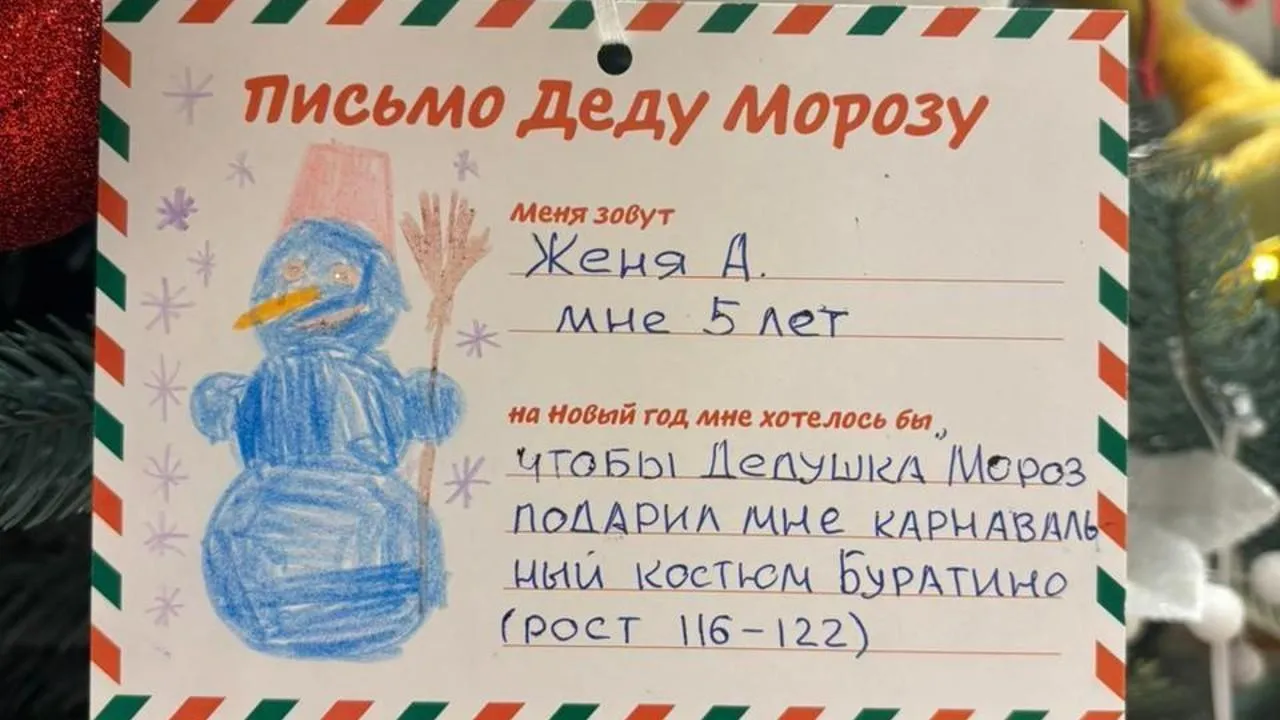 Письмо Деду Морозу
Меня зовут
Женя А.
мне 5 лет
на Новый год мне хотелось бы,
чтобы Дедушка Мороз
подарил мне карнаваль-
ный костюм Буратино
(рост 116-122)